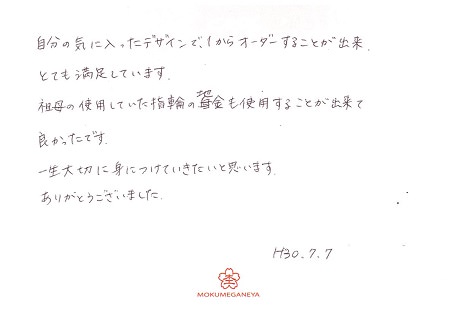 自分の気に入ったデザインで、1からオーダーすることが出来、
とても満足しています。
祖母の使用していた指輪の地金も使用することが出来て
良かったです。
一生大切に身につけていきたいと思います。
ありがとうございました。
H30.7.7
MOKUMEGANEYA